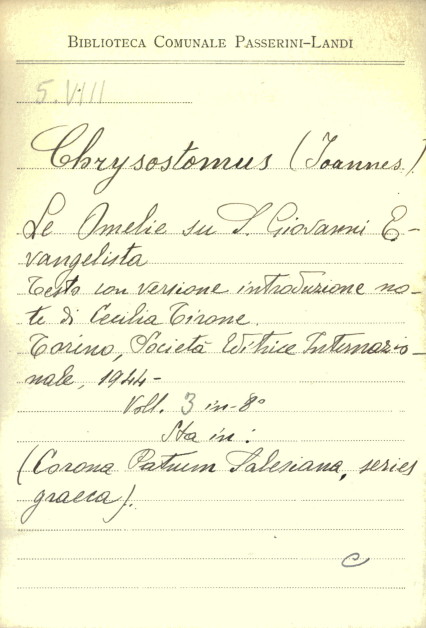 BIBLIOTECA COMUNALE PASSERINI-LANDI
5.VIII
Chrysostomus (Joannes)
Le Omelie su S. Giovanni E-
vangelista
Testo con versione introduzione no-
te di Cecilia Tirone.
Torino, Società Editrice Internazio-
nale, 1944-
Voll. 3 in-8°
Sta in:
(Corona Patrum Salesiana, series
graeca).
C